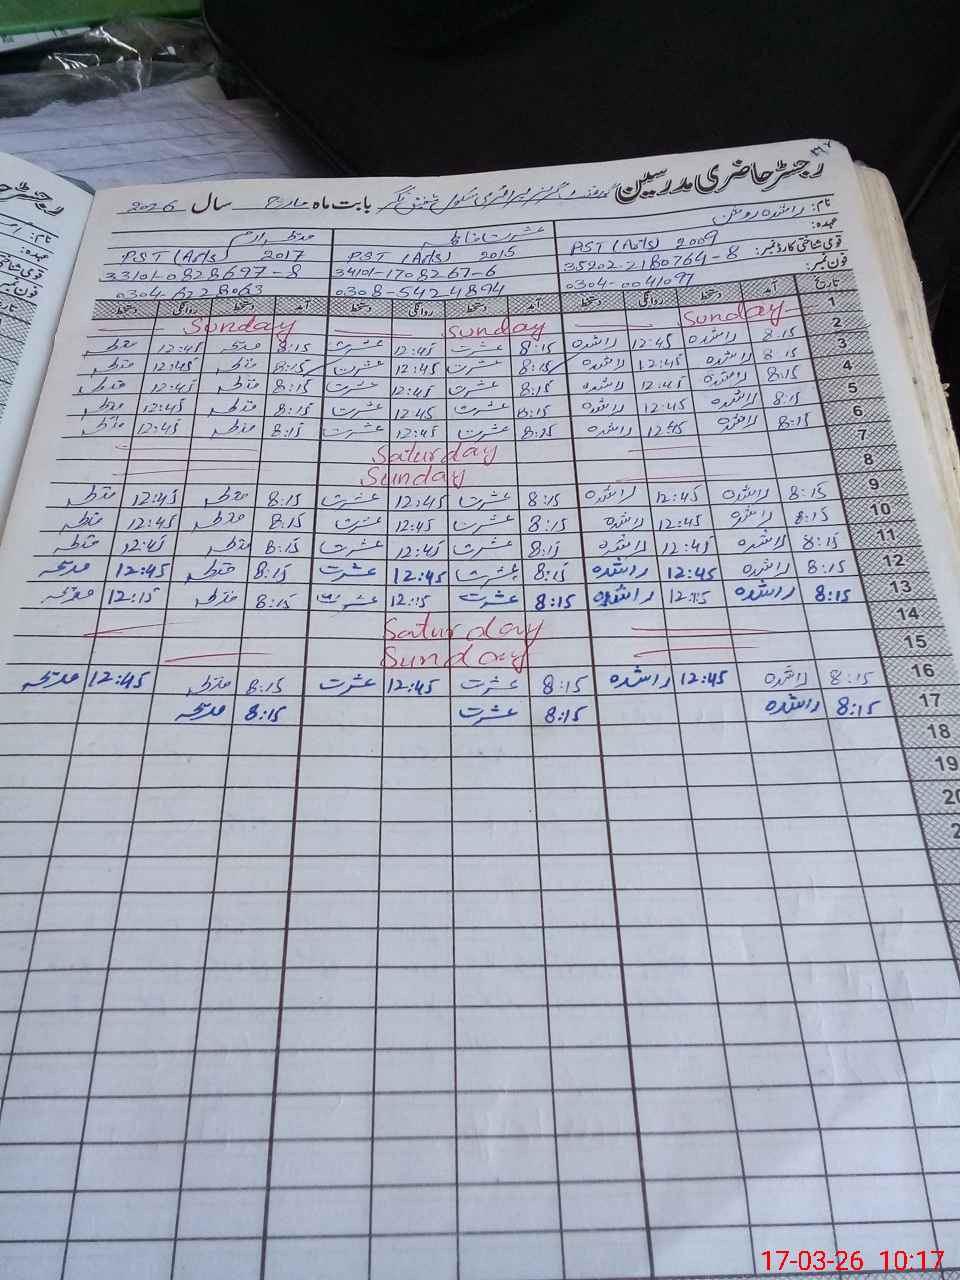 رجسٹر حاضری مدرسین گورنمنٹ گرلز پرائمری سکول بابت ماہ مارچ سال 2026
نام: راشدہ روشن عشرت فاطمہ
عہدہ: PST (Arts) 2009 PST (Arts) 2015 PST (Arts) 2017
قومی شناختی کارڈ نمبر: 35202-2180764-8 34101-1708267-6 33101-0828697-8
فون نمبر: 0304-0041097 0308-5424894
تاریخ آمد دستخط روانگی دستخط آمد دستخط روانگی دستخط آمد دستخط روانگی دستخط
1 Sunday Sunday Sunday
2 8:15 راشدہ 12:45 راشدہ 8:15 عشرت 12:45 عشرت 8:15 12:45
3 8:15 راشدہ 12:45 راشدہ 8:15 عشرت 12:45 عشرت 8:15 12:45
4 8:15 راشدہ 12:45 راشدہ 8:15 عشرت 12:45 عشرت 8:15 12:45
5 8:15 راشدہ 12:45 راشدہ 8:15 عشرت 12:45 عشرت 8:15 12:45
6 8:15 راشدہ 12:45 راشدہ 8:15 عشرت 12:45 عشرت 8:15 12:45
7 Saturday
8 Sunday
9 8:15 راشدہ 12:45 راشدہ 8:15 عشرت 12:45 عشرت 8:15 12:45
10 8:15 راشدہ 12:45 راشدہ 8:15 عشرت 12:45 عشرت 8:15 12:45
11 8:15 راشدہ 12:45 راشدہ 8:15 عشرت 12:45 عشرت 8:15 12:45
12 8:15 راشدہ 12:45 راشدہ 8:15 عشرت 12:45 عشرت 8:15 12:45 مدیحہ
13 8:15 راشدہ 12:15 راشدہ 8:15 عشرت 12:15 عشرت 8:15 12:15 مدیحہ
14 Saturday
15 Sunday
16 8:15 راشدہ 12:45 راشدہ 8:15 عشرت 12:45 عشرت 8:15 12:45 مدیحہ
17 8:15 راشدہ 8:15 عشرت 8:15 مدیحہ
18
19
17-03-26 10:17